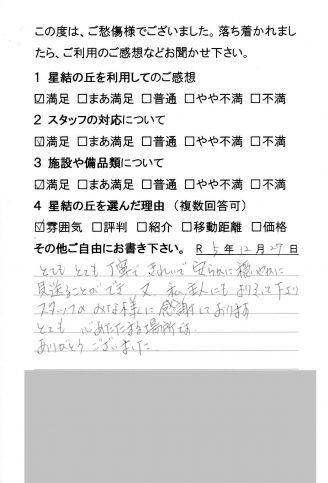 この度は、ご愁傷様でございました。落ち着かれまし
たら、ご利用のご感想などお聞かせ下さい。
1 星結の丘を利用してのご感想
☑満足 □まあ満足 □普通 □やや不満 □不満
2 スタッフの対応について
☑満足 □まあ満足 □普通 □やや不満 □不満
3 施設や備品類について
☑満足 □まあ満足 □普通 □やや不満 □不満
4 星結の丘を選んだ理由（複数回答可）
☑雰囲気 □評判 □紹介 □移動距離 □価格
その他ご自由にお書き下さい。 R 5年12月27日
とても とても 丁寧で きれいで 安らかに 穏やかに
見送ることができ 又 私達人にも より
スタッフの みな様に 感謝しております
とても 心あたたまる場所
ありがとう ございました